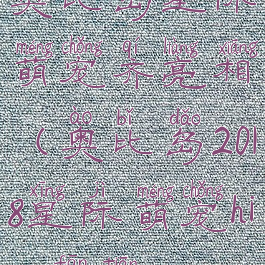 奥比岛星际
méng chǒng qí liàng xiàng
萌宠齐亮相
ào bǐ dǎo
(奥比岛201
xīng jì méng chǒng
8星际萌宠hi